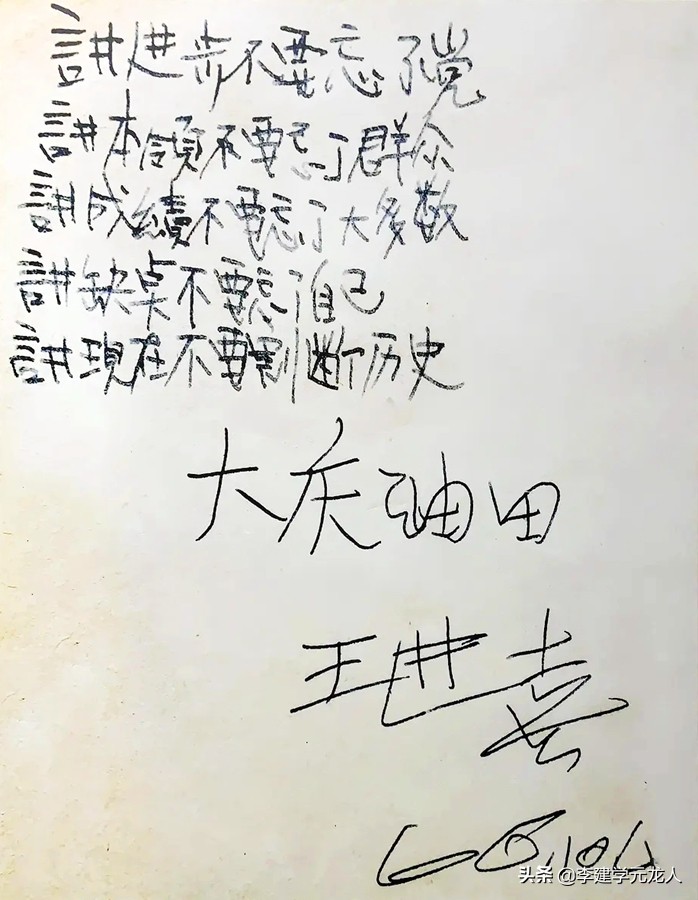 講进步不要忘了党
講本領不要忘了群众
講成績不要忘了大多数
講缺点不要忘了自己
講現在不要割断历史
大庆油田
王进喜
头条 @李建学元龙人